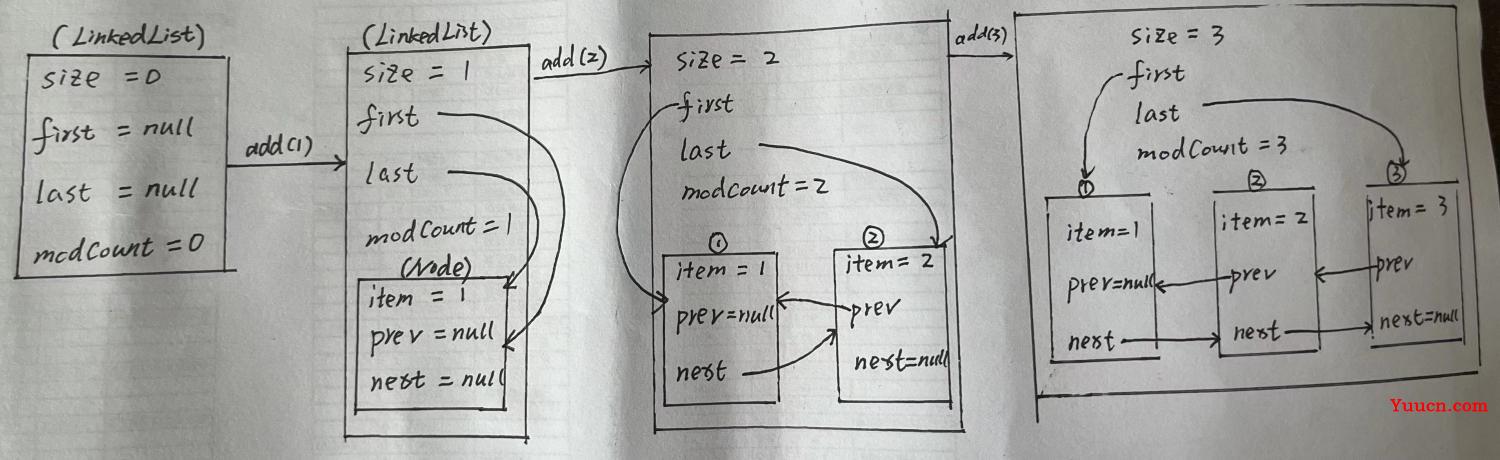 (LinkedList)
size = 0
first = null
last = null
modCount = 0
add(1)
(LinkedList)
size = 1
first
last
modCount = 1
(Node)
item = 1
prev = null
next = null
add(2)
size = 2
first
last
modcount = 2
①
item = 1
prev=null
next
②
item = 2
prev
next=null
add(3)
size = 3
first
last
modCount = 3
①
item=1
prev=null
next
②
item = 2
prev
next
③
item = 3
prev
next=null
Yuucn.com